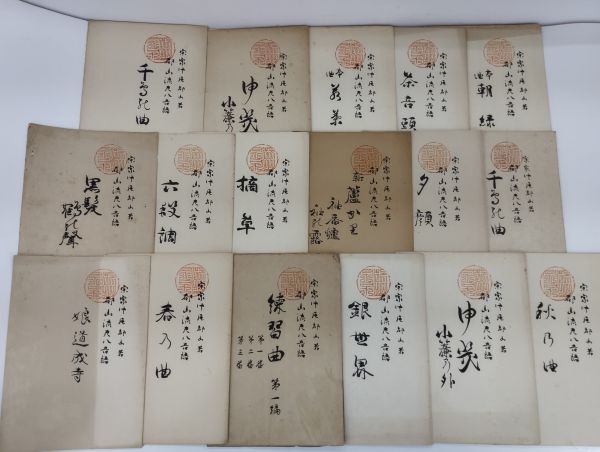 宗家中尾都山著
都山流尺八音譜
本曲 朝緑
宗家中尾都山著
都山流尺八音譜
茶音頭
宗家中尾都山著
都山流尺八音譜
本曲 若葉
宗家中尾都山著
都山流尺八音譜
小簾の
宗家中尾都山著
都山流尺八音譜
千鳥の曲
宗家中尾都山著
都山流尺八音譜
千鳥の曲
宗家中尾都山著
都山流尺八音譜
夕顔
宗家中尾都山著
都山流尺八音譜
袖香爐
袖の露
宗家中尾都山著
都山流尺八音譜
摘草
宗家中尾都山著
都山流尺八音譜
六段調
宗家中尾都山著
都山流尺八音譜
黒髪
鶴の聲
宗家中尾都山著
都山流尺八音譜
秋乃曲
宗家中尾都山著
都山流尺八音譜
小簾の外
宗家中尾都山著
都山流尺八音譜
銀世界
宗家中尾都山著
都山流尺八音譜
練習曲 第一編
第一番
第二番
第三番
宗家中尾都山著
都山流尺八音譜
春乃曲
宗家中尾都山著
都山流尺八音譜
娘道成寺